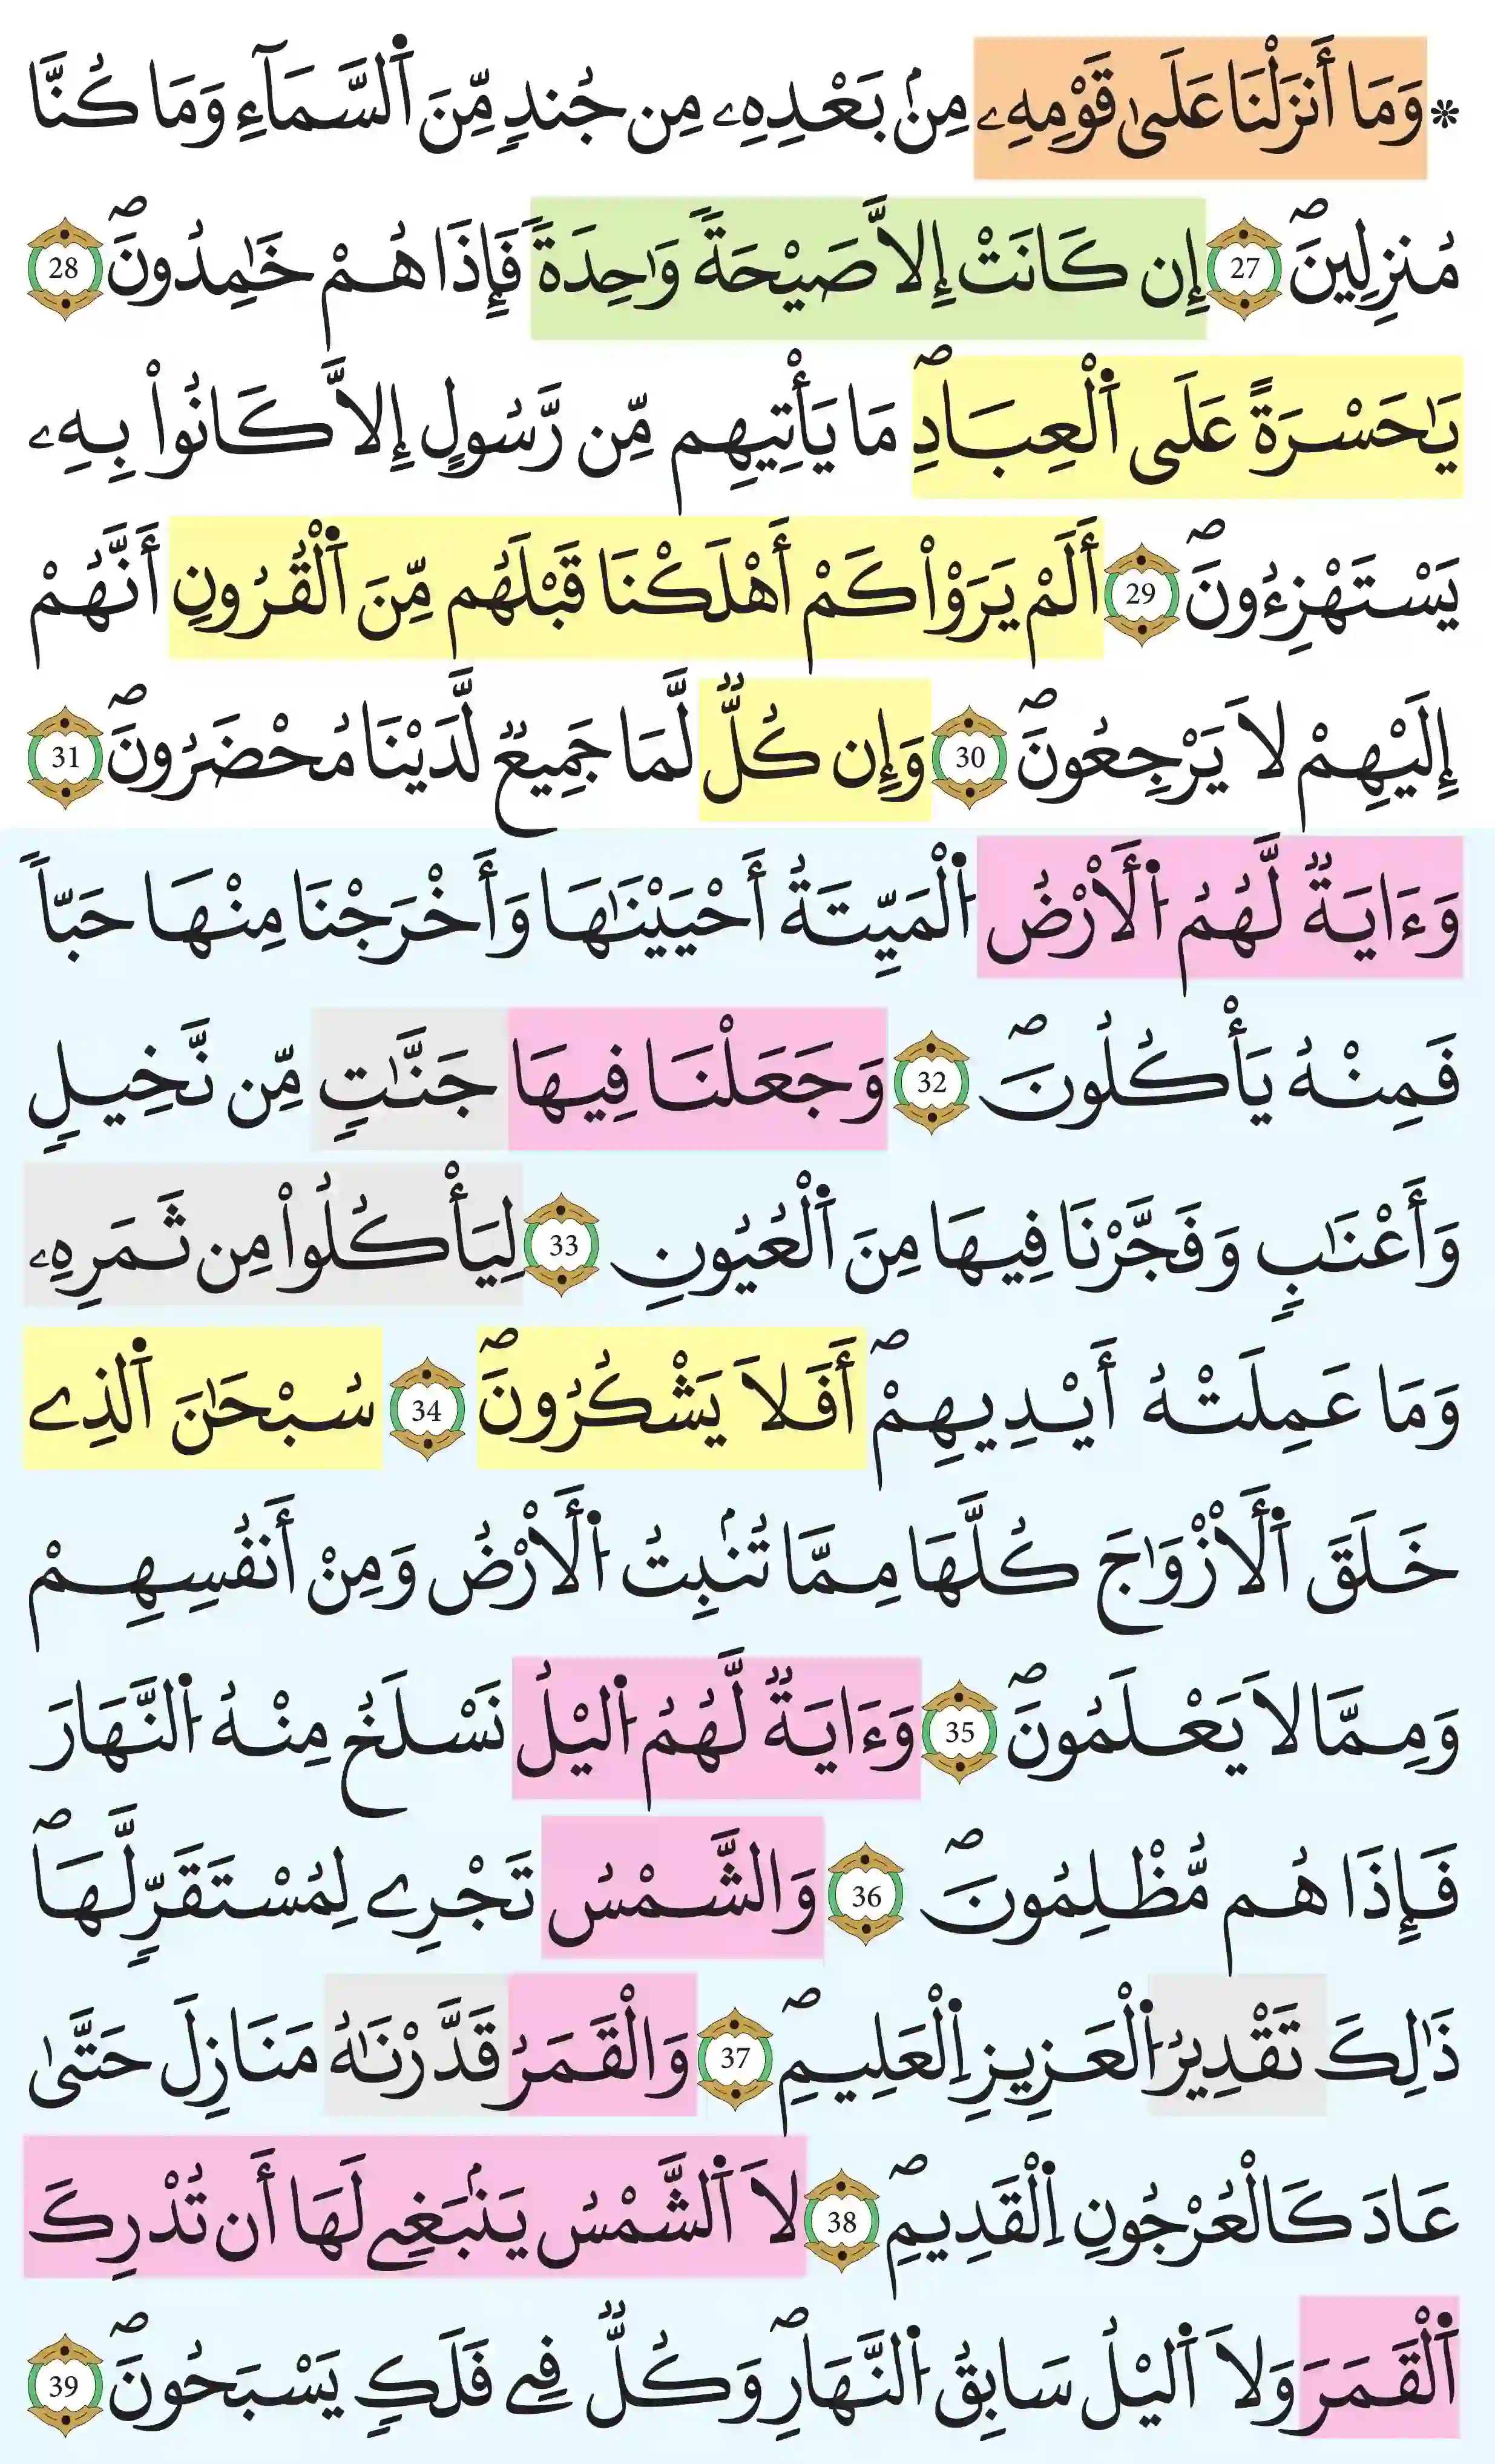 * وَمَا أَنزَلْنَا عَلَىٰ قَوْمِهِۦ مِنۢ بَعْدِهِۦ مِن جُندٍ مِّنَ ٱلسَّمَآءِ وَمَا كُنَّا
مُنزِلِينَۖ 27 إِن كَانَتْ إِلاَّ صَيْحَةٗ وَٰحِدَةٗ فَإِذَا هُمْ خَٰمِدُونَۖ 28
يَٰحَسْرَةً عَلَى ٱلْعِبَادِۖ مَا يَأْتِيهِم مِّن رَّسُولٍ إِلاَّ كَانُواْ بِهِۦ
يَسْتَهْزِءُونَۖ 29 أَلَمْ يَرَوْاْ كَمْ أَهْلَكْنَا قَبْلَهُم مِّنَ ٱلْقُرُونِ أَنَّهُمْ
إِلَيْهِمْ لاَ يَرْجِعُونَۖ 30 وَإِن كُلّٞ لَّمَا جَمِيعٞ لَّدَيْنَا مُحْضَرُونَۖ 31
وَءَايَةٞ لَّهُمُ ٱلَارْضُ ٱلْمَيِّتَةُ أَحْيَيْنَٰهَا وَأَخْرَجْنَا مِنْهَا حَبّاٗ
فَمِنْهُ يَأْكُلُونَۖ 32 وَجَعَلْنَا فِيهَا جَنَّٰتٖ مِّن نَّخِيلٖ
وَأَعْنَٰبٖ وَفَجَّرْنَا فِيهَا مِنَ ٱلْعُيُونِ 33 لِيَأْكُلُواْ مِن ثَمَرِهِۦ
وَمَا عَمِلَتْهُ أَيْدِيهِمْۖ أَفَلاَ يَشْكُرُونَۖ 34 سُبْحَٰنَ ٱلذِے
خَلَقَ ٱلَازْوَٰجَ كُلَّهَا مِمَّا تُنۢبِتُ ٱلَارْضُ وَمِنْ أَنفُسِهِمْ
وَمِمَّا لاَ يَعْلَمُونَۖ 35 وَءَايَةٞ لَّهُمُ ٱليْلُ نَسْلَخُ مِنْهُ ٱلنَّهَارَ
فَإِذَا هُم مُّظْلِمُونَۖ 36 وَالشَّمْسُ تَجْرِے لِمُسْتَقَرّٖ لَّهَاۖ
ذَٰلِكَ تَقْدِيرُ ٱلْعَزِيزِ ٱلْعَلِيمِۖ 37 وَالْقَمَرُ قَدَّرْنَٰهُ مَنَازِلَ حَتَّىٰ
عَادَ كَالْعُرْجُونِ ٱلْقَدِيمِۖ 38 لاَ ٱلشَّمْسُ يَنۢبَغِے لَهَا أَن تُدْرِكَ
ٱلْقَمَرَ وَلاَ ٱليْلُ سَابِقُ ٱلنَّهَارِۖ وَكُلّٞ فِے فَلَكٖ يَسْبَحُونَۖ 39